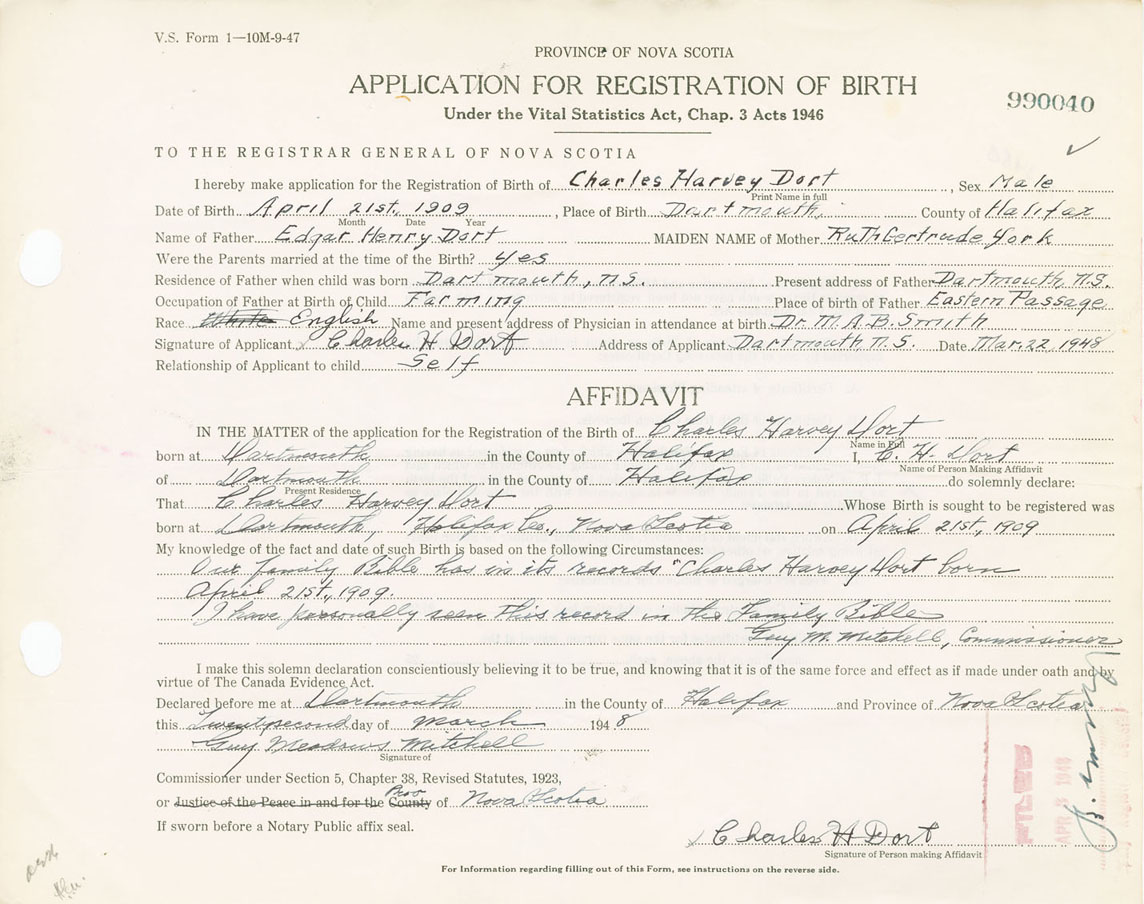 V.S. Form 1—10M-9-47
PROVINCE OF NOVA SCOTIA
APPLICATION FOR REGISTRATION OF BIRTH
990040
Under the Vital Statistics Act, Chap. 3 Acts 1946
TO THE REGISTRAR GENERAL OF NOVA SCOTIA
I hereby make application for the Registration of Birth of Charles Harvey Dort, Sex Male
Print Name in full
Date of Birth April 21st, 1909, Place of Birth Dartmouth, County of Halifax
Month Date Year
Name of Father Edgar Henry Dort MAIDEN NAME of Mother Ruth Gertrude York
Were the Parents married at the time of the Birth? Yes
Residence of Father when child was born Dartmouth, N.S. Present address of Father Dartmouth, N.S.
Occupation of Father at Birth of Child Farming Place of birth of Father Eastern Passage
Race White English Name and present address of Physician in attendance at birth Dr. M. A. B. Smith
Signature of Applicant Charles H Dort Address of Applicant Dartmouth N.S. Date Mar. 22 1948
Relationship of Applicant to child Self
AFFIDAVIT
IN THE MATTER of the application for the Registration of the Birth of Charles Harvey Dort
Name in Full
born at Dartmouth in the County of Halifax I, C. H. Dort
Name of Person Making Affidavit
of Dartmouth in the County of Halifax do solemnly declare:
Present Residence
That Charles Harvey Dort Whose Birth is sought to be registered was
born at Dartmouth, Halifax Co., Nova Scotia on April 21st, 1909
My knowledge of the fact and date of such Birth is based on the following Circumstances:
Our family Bible has in its records "Charles Harvey Dort born
April 21st, 1909.
I have personally seen this record in the Family Bible
Guy M. Mitchell, Commissioner
I make this solemn declaration conscientiously believing it to be true, and knowing that it is of the same force and effect as if made under oath and by
virtue of The Canada Evidence Act.
Declared before me at Dartmouth in the County of Halifax and Province of Nova Scotia
this Twenty second day of March 1948
Guy Meadows Mitchell
Signature of
Commissioner under Section 5, Chapter 38, Revised Statutes, 1923,
or Justice of the Peace in and for the County Prov of Nova Scotia
If sworn before a Notary Public affix seal.
FILED
APR 1948
Charles H Dort
Signature of Person making Affidavit
For Information regarding filling out of this Form, see instructions on the reverse side.